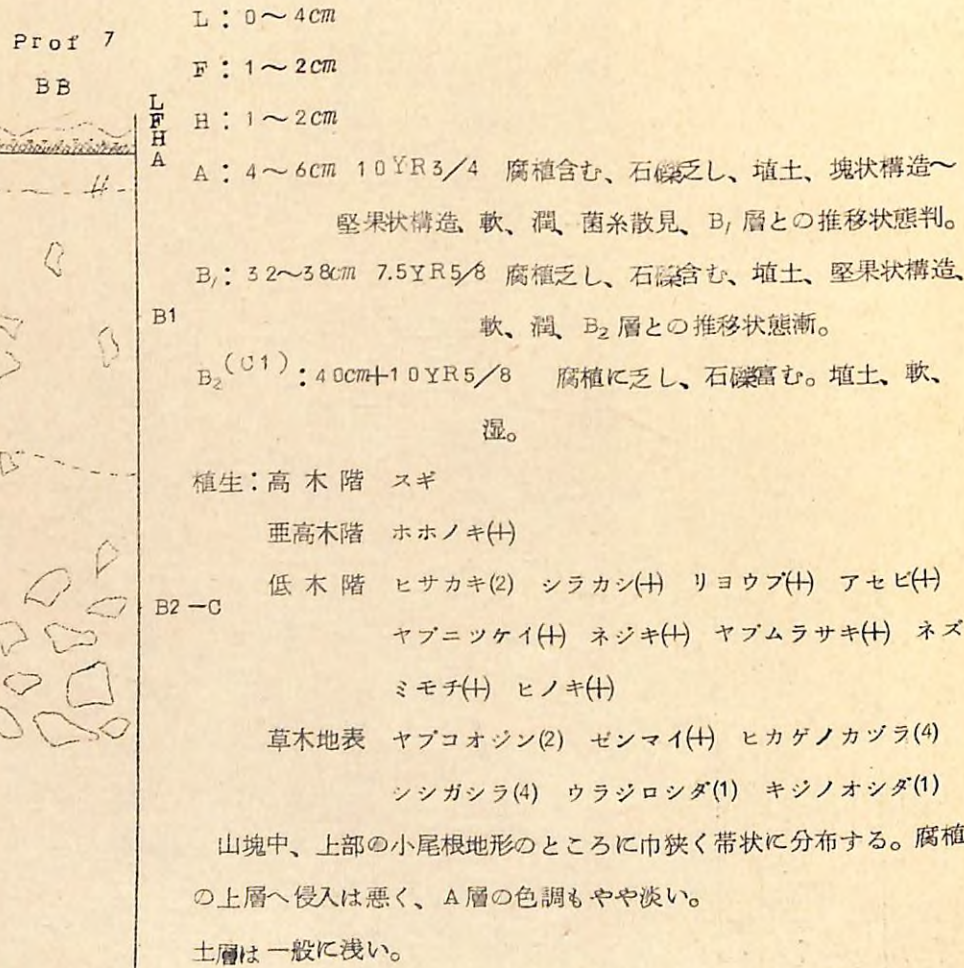 Prof 7
BB
L
F
H
A
B1
B2-C
L：0〜4cm
F：1〜2cm
H：1〜2cm
A：4〜6cm 10YR3/4 腐植含む、石礫乏し、埴土、塊状構造〜
堅果状構造、軟、潤、菌糸散見、B1層との推移状態判。
B1：32〜38cm 7.5YR5/8 腐植乏し、石礫含む、埴土、堅果状構造、
軟、潤、B2層との推移状態漸。
B2(C1)：40cm+10YR5/8 腐植に乏し、石礫富む。埴土、軟、
湿。
植生：高木階 スギ
亜高木階 ホホノキ(+)
低木階 ヒサカキ(2) シラカシ(+) リヨウブ(+) アセビ(+)
ヤブニツケイ(+) ネジキ(+) ヤブムラサキ(+) ネズ
ミモチ(+) ヒノキ(+)
草木地表 ヤブコオジン(2) ゼンマイ(+) ヒカゲノカヅラ(4)
シシガシラ(4) ウラジロシダ(1) キジノオシダ(1)
山塊中、上部の小尾根地形のところに巾狭く帯状に分布する。腐植
の上層へ侵入は悪く、A層の色調もやや淡い。
土層は一般に浅い。